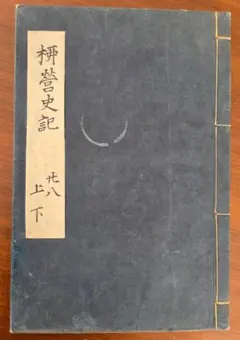 桺營史記
廿八
上下